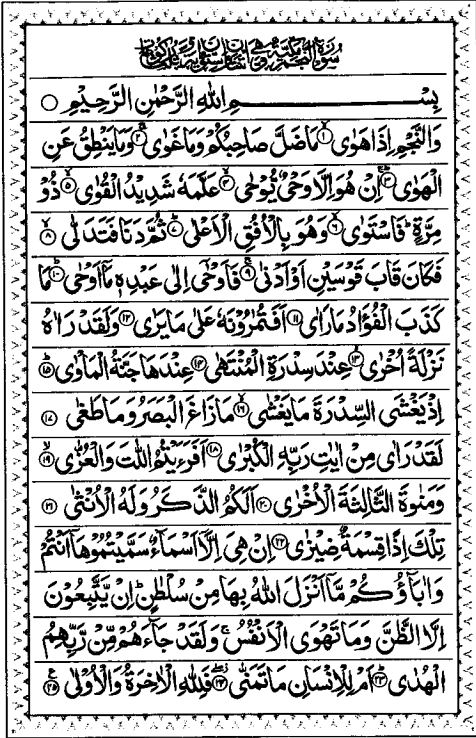 سُوْرَةُ النَّجْمِ مَكِّيَّةٌ وَّهِيَ اثْنَتَانِ وَسِتُّوْنَ اٰيَةً وَّثَلٰثُ رُكُوْعَاتٍ
بِسْمِ اللّٰهِ الرَّحْمٰنِ الرَّحِيْمِ ○
وَالنَّجْمِ اِذَا هَوٰى ۙ﴿۱﴾ مَا ضَلَّ صَاحِبُكُمْ وَمَا غَوٰى ۚ﴿۲﴾ وَمَا يَنْطِقُ عَنِ
الْهَوٰى ؕ﴿۳﴾ اِنْ هُوَ اِلَّا وَحْيٌ يُّوْحٰى ۙ﴿۴﴾ عَلَّمَهٗ شَدِيْدُ الْقُوٰى ۙ﴿۵﴾ ذُوْ
مِرَّةٍ ؕ فَاسْتَوٰى ۙ﴿۶﴾ وَهُوَ بِالْاُفُقِ الْاَعْلٰى ؕ﴿۷﴾ ثُمَّ دَنَا فَتَدَلّٰى ۙ﴿۸﴾
فَكَانَ قَابَ قَوْسَيْنِ اَوْ اَدْنٰى ۚ﴿۹﴾ فَاَوْحٰۤى اِلٰى عَبْدِهٖ مَاۤ اَوْحٰى ؕ﴿۱۰﴾ مَا
كَذَبَ الْفُؤَادُ مَا رَاٰى ﴿۱۱﴾ اَفَتُمٰرُوْنَهٗ عَلٰى مَا يَرٰى ﴿۱۲﴾ وَلَقَدْ رَاٰهُ
نَزْلَةً اُخْرٰى ۙ﴿۱۳﴾ عِنْدَ سِدْرَةِ الْمُنْتَهٰى ﴿۱۴﴾ عِنْدَهَا جَنَّةُ الْمَاْوٰى ؕ﴿۱۵﴾
اِذْ يَغْشَى السِّدْرَةَ مَا يَغْشٰى ۙ﴿۱۶﴾ مَا زَاغَ الْبَصَرُ وَمَا طَغٰى ﴿۱۷﴾
لَقَدْ رَاٰى مِنْ اٰيٰتِ رَبِّهِ الْكُبْرٰى ﴿۱۸﴾ اَفَرَءَيْتُمُ اللّٰتَ وَالْعُزّٰى ۙ﴿۱۹﴾
وَمَنٰوةَ الثَّالِثَةَ الْاُخْرٰى ﴿۲۰﴾ اَلَكُمُ الذَّكَرُ وَلَهُ الْاُنْثٰى ﴿۲۱﴾
تِلْكَ اِذًا قِسْمَةٌ ضِيْزٰى ﴿۲۲﴾ اِنْ هِيَ اِلَّاۤ اَسْمَآءٌ سَمَّيْتُمُوْهَاۤ اَنْتُمْ
وَاٰبَآؤُكُمْ مَّاۤ اَنْزَلَ اللّٰهُ بِهَا مِنْ سُلْطٰنٍ ؕ اِنْ يَّتَّبِعُوْنَ
اِلَّا الظَّنَّ وَمَا تَهْوَى الْاَنْفُسُ ۚ وَلَقَدْ جَآءَهُمْ مِّنْ رَّبِّهِمُ
الْهُدٰى ؕ﴿۲۳﴾ اَمْ لِلْاِنْسَانِ مَا تَمَنّٰى ۖ﴿۲۴﴾ فَلِلّٰهِ الْاٰخِرَةُ وَالْاُوْلٰى ﴿۲۵﴾ ع